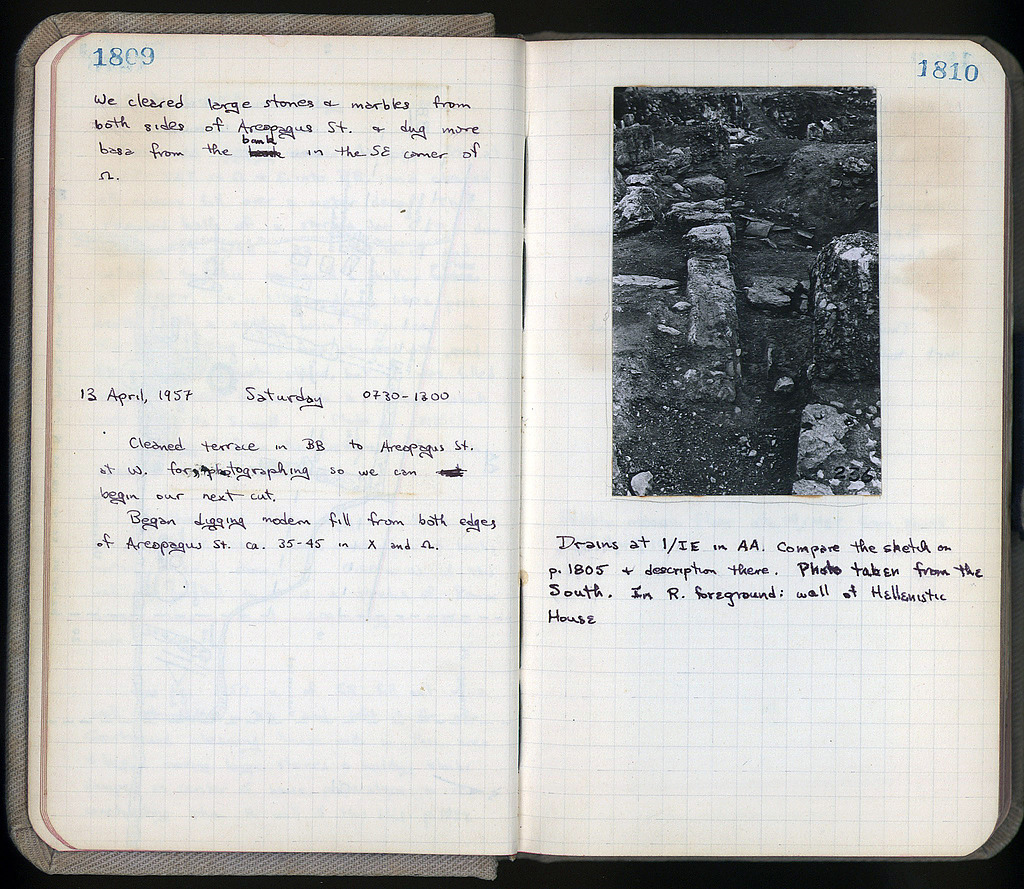 1809
We cleared large stones & marbles from
both sides of Areopagus St. & dug more
basa from the bank in the SE corner of
Ω.
13 April, 1957 Saturday 0730-1300
Cleaned terrace in BB to Areopagus St.
at W. for photographing so we can
begin our next cut.
Began digging modern fill from both edges
of Areopagus St. ca. 35-45 in X and Ω.
1810
Drains at 1/IE in AA. Compare the sketch on
p. 1805 & description there. Photo taken from the
South. In R. foreground: wall of Hellenistic
House